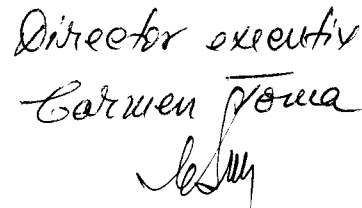 Director executiv
Carmen Toma